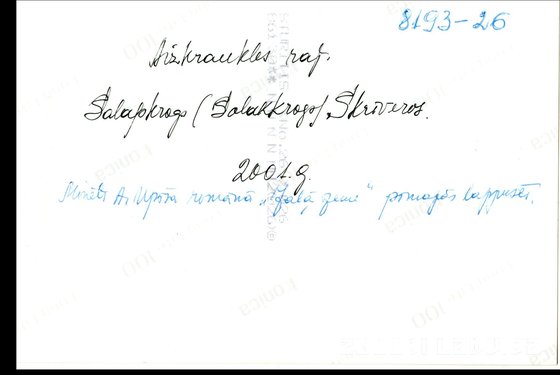 8193-26
Aizkraukles raj.
Salapkrogs (Salakkrogs) Skrīveros.
2001.g.
Minēts A. Upīša romānā "Zaļā zeme" pirmajās lappusēs.
Konica